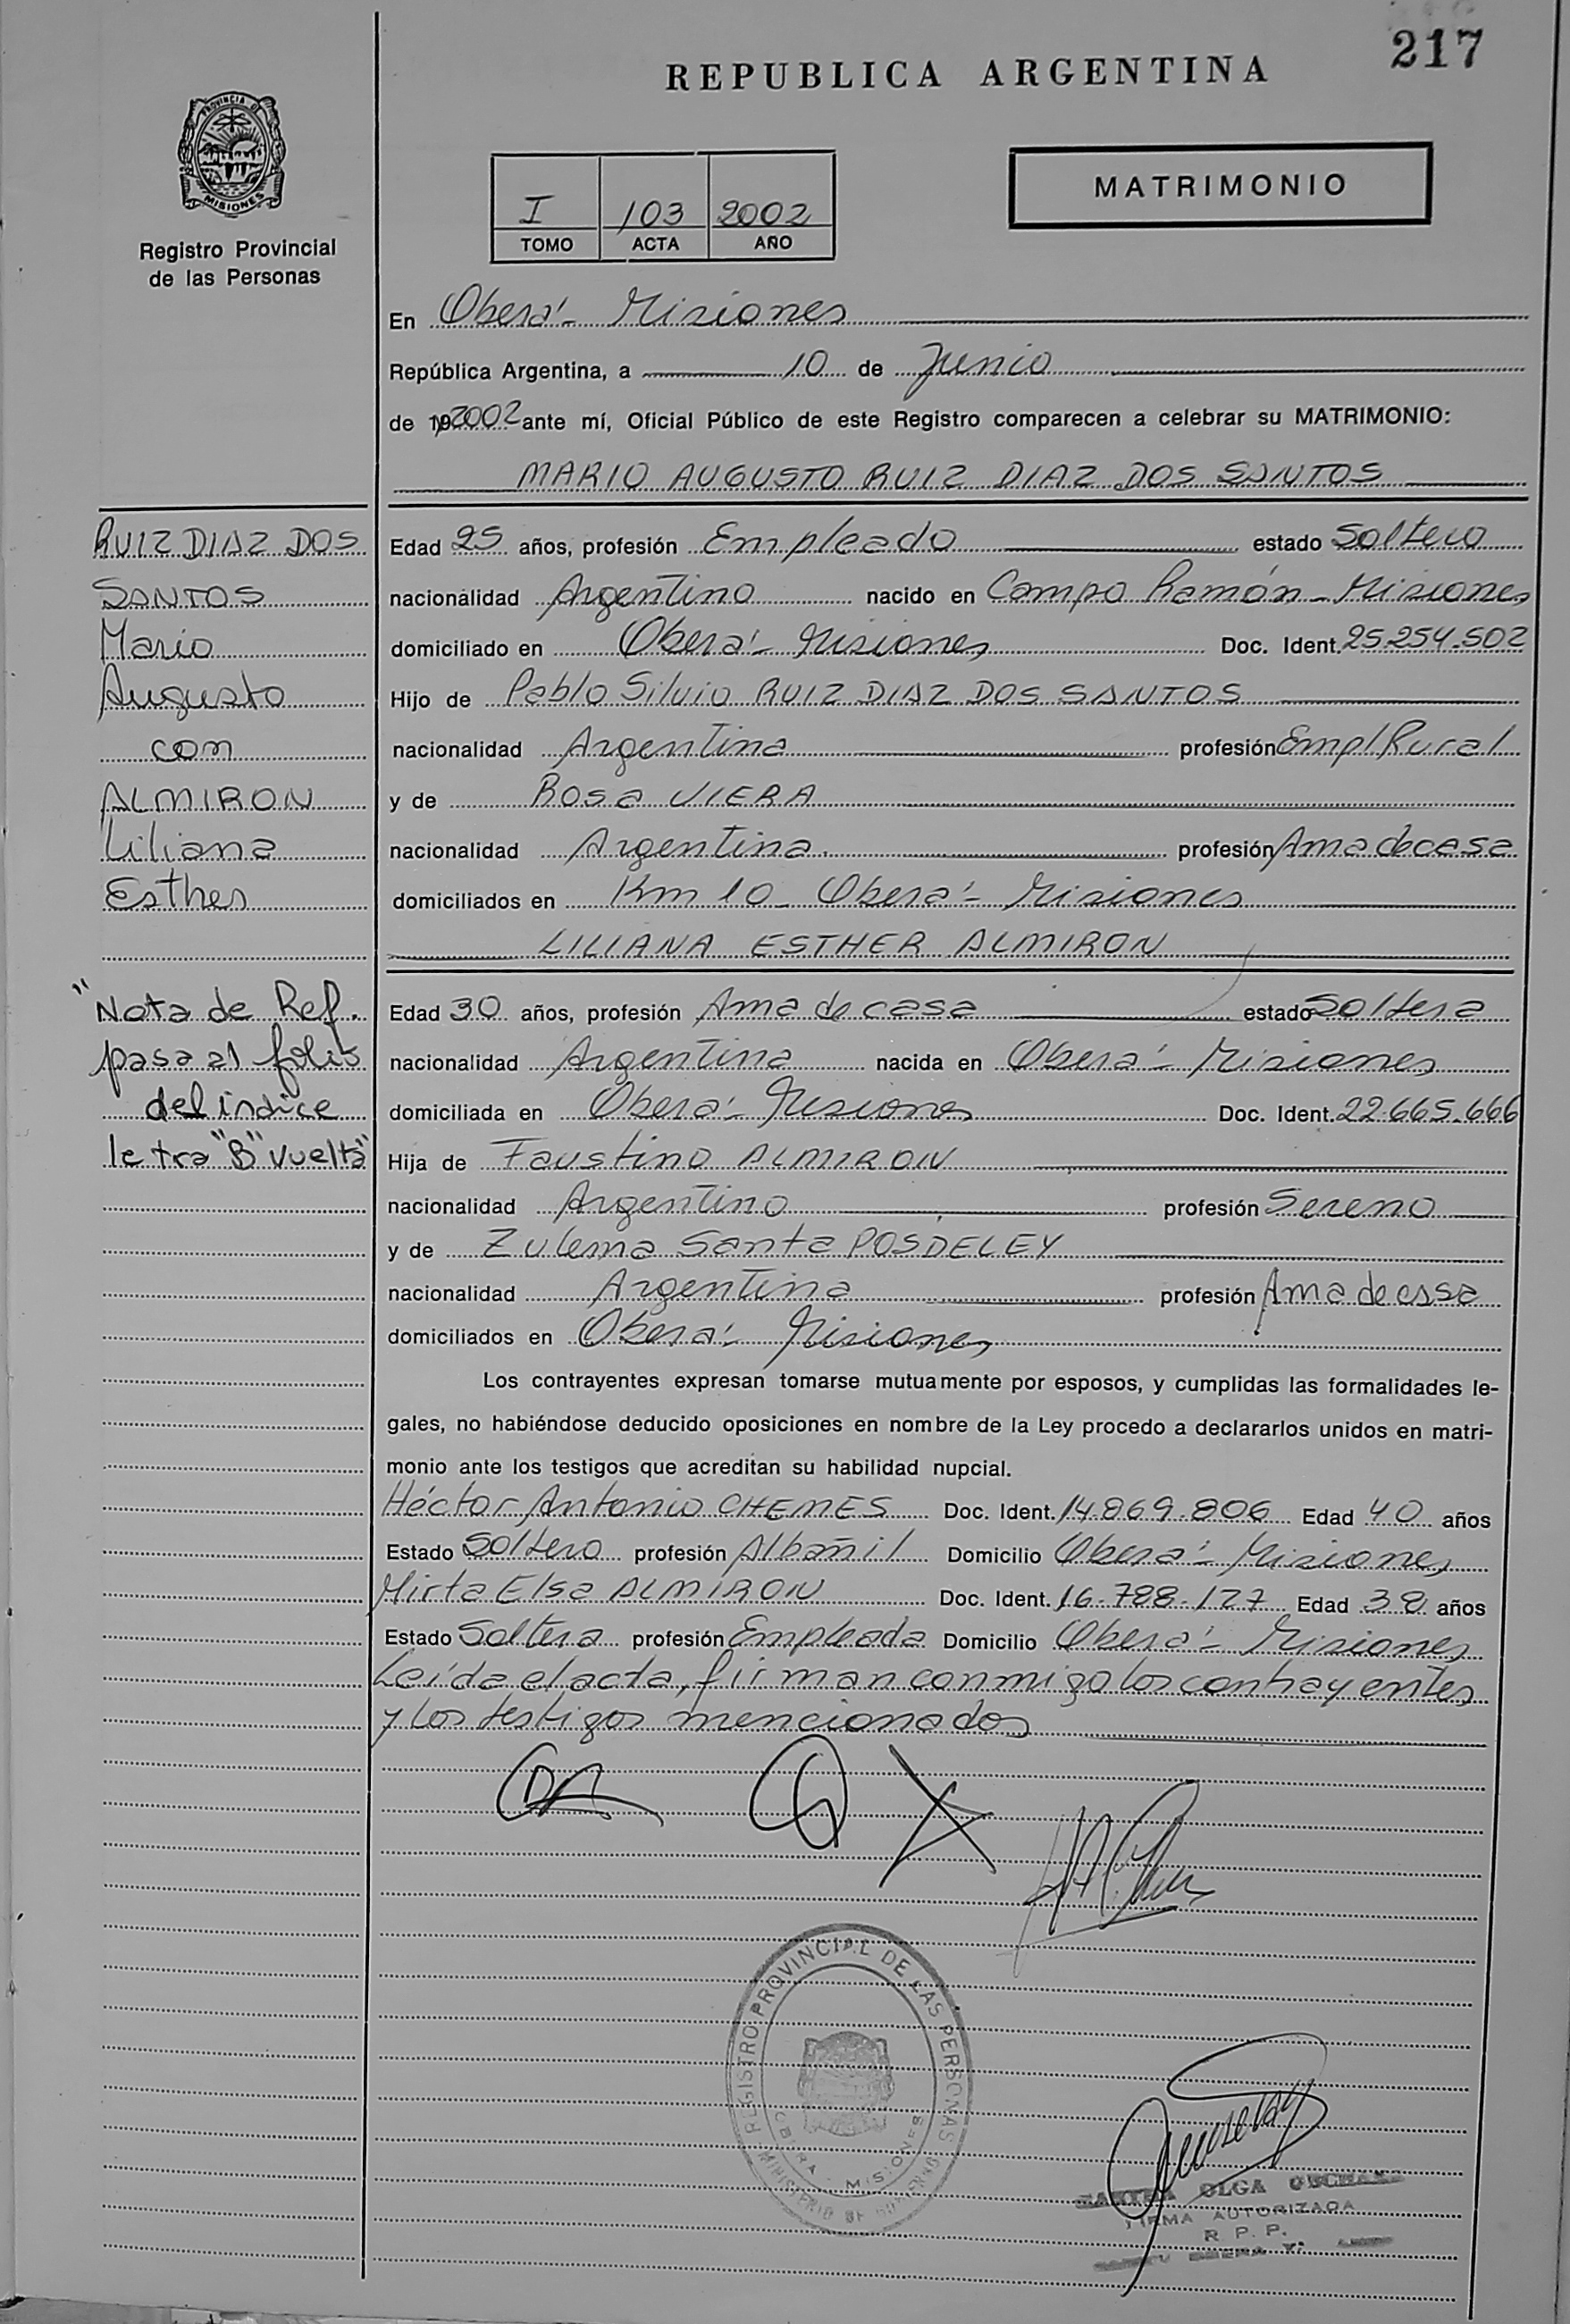 217
REPUBLICA ARGENTINA
PROVINCIA DE
MISIONES
Registro Provincial
de las Personas
I 103 2002
TOMO ACTA AÑO
MATRIMONIO
En Oberá - Misiones
República Argentina, a 10 de Junio
de 19 2002 ante mí, Oficial Público de este Registro comparecen a celebrar su MATRIMONIO:
MARIO AUGUSTO RUIZ DIAZ DOS SANTOS
RUIZ DIAZ DOS
SANTOS
Mario
Augusto
con
ALMIRON
Liliana
Esther
"Nota de Ref.
pasa al folio
del indice
letra "B" vuelta"
Edad 25 años, profesión Empleado estado Soltero
nacionalidad Argentino nacido en Campo Ramón - Misiones
domiciliado en Oberá - Misiones Doc. Ident. 25.254.502
Hijo de Pablo Silvio RUIZ DIAZ DOS SANTOS
nacionalidad Argentina profesión Empl Rural
y de Rosa VIERA
nacionalidad Argentina. profesión Ama de casa
domiciliados en Km 10 - Oberá - Misiones
LILIANA ESTHER ALMIRON
Edad 30 años, profesión Ama de casa estado Soltera
nacionalidad Argentina nacida en Oberá - Misiones
domiciliada en Oberá - Misiones Doc. Ident. 22.665.666
Hija de Faustino ALMIRON
nacionalidad Argentino profesión Sereno
y de Zulema Santa POSDELEY
nacionalidad Argentina profesión Ama de casa
domiciliados en Oberá - Misiones
Los contrayentes expresan tomarse mutuamente por esposos, y cumplidas las formalidades le-
gales, no habiéndose deducido oposiciones en nombre de la Ley procedo a declararlos unidos en matri-
monio ante los testigos que acreditan su habilidad nupcial.
Héctor Antonio CHEMES Doc. Ident. 14.869.806 Edad 40 años
Estado Soltero profesión Albañil Domicilio Oberá - Misiones
Mirta Elsa ALMIRON Doc. Ident. 16.788.127 Edad 38 años
Estado Soltera profesión Empleada Domicilio Oberá - Misiones
Leída el acta, firman conmigo los contrayentes
y los testigos mencionados
REGISTRO PROVINCIAL DE LAS PERSONAS
OBERA - MISIONES
MINISTERIO DE GOBIERNO
OLGA
FIRMA AUTORIZADA
R. P. P.